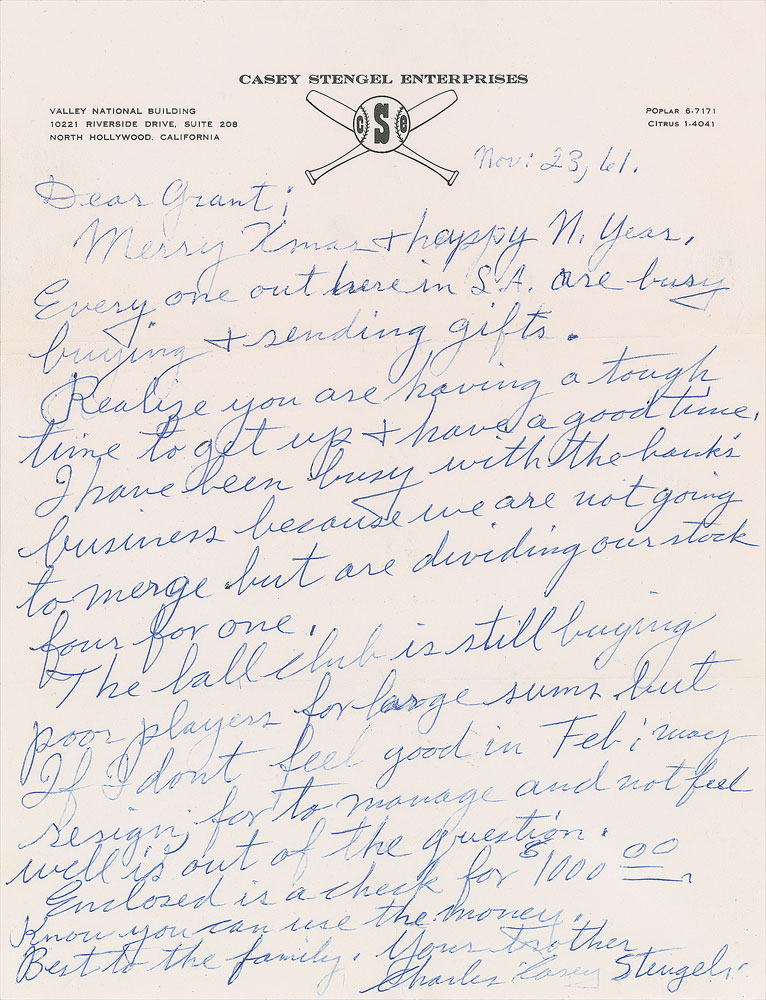 CASEY STENGEL ENTERPRISES
VALLEY NATIONAL BUILDING
10221 RIVERSIDE DRIVE, SUITE 208
NORTH HOLLYWOOD, CALIFORNIA
C S E
POPLAR 6-7171
CITRUS 1-4041
Nov: 23, 61.
Dear Grant;
Merry Xmas + happy N. Year.
Every one out here in L.A. are busy
buying + sending gifts.
Realize you are having a tough
time to get up + have a good time.
I have been busy with the bank's
business because we are not going
to merge but are dividing our stock
four for one.
The ball club is still buying
poor players for large sums but
If I dont feel good in Feb; may
resign, for to manage and not feel
well is out of the question.
Enclosed is a check for $1000 00
Know you can use the money.
Best to the family. Your brother
Charles "Casey Stengel"